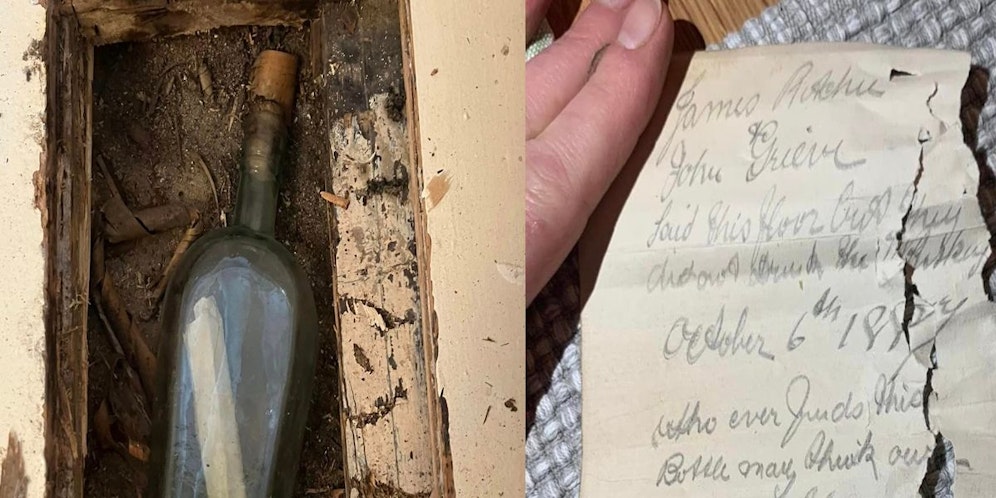 James Ritchie
& John Grieve
laid this floor but they
did not drink the Whiskey
October 6th 1887
who ever finds this
Bottle may think our